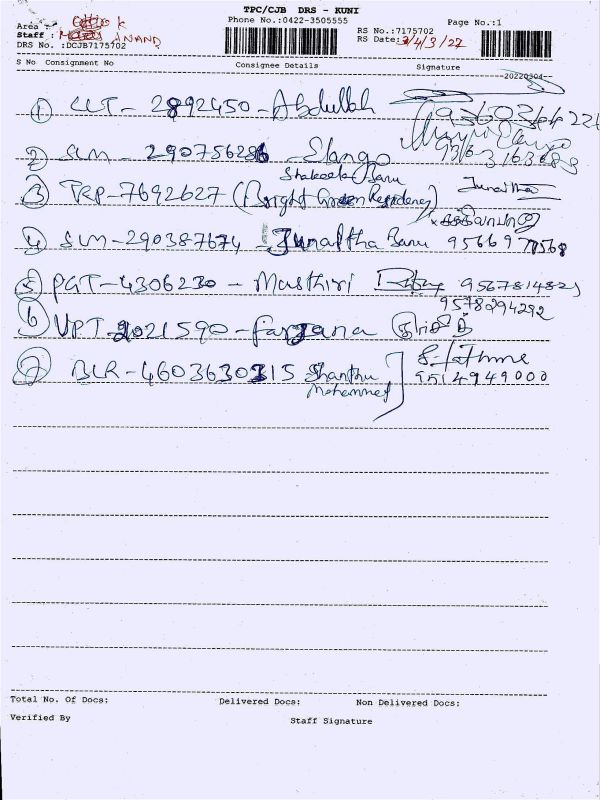 TPC/CJB DRS - KUNI
Phone No.:0422-3505555 Page No.:1
Area : K
Staff : ANAND
RS No.:7175702
DRS No. :DCJB7175702
RS Date: 4/3/22
S No Consignment No Consignee Details Signature
20220304
① CLT - 2892450 - Abdullah
② SLM - 290756286 - Slango
Shakeela Banu
③ TRP - 7692627 (Bright Green Residency)
④ SLM - 290387674 - Junaitha Banu 9566977568
⑤ PGT - 4306230 - Masthiri
9578294292
⑥ VPT 2021590 - Farzana
⑦ BLR - 4603630315 Shanthu
Mohammed
9514949000
Total No. Of Docs: Delivered Docs: Non Delivered Docs:
Verified By Staff Signature